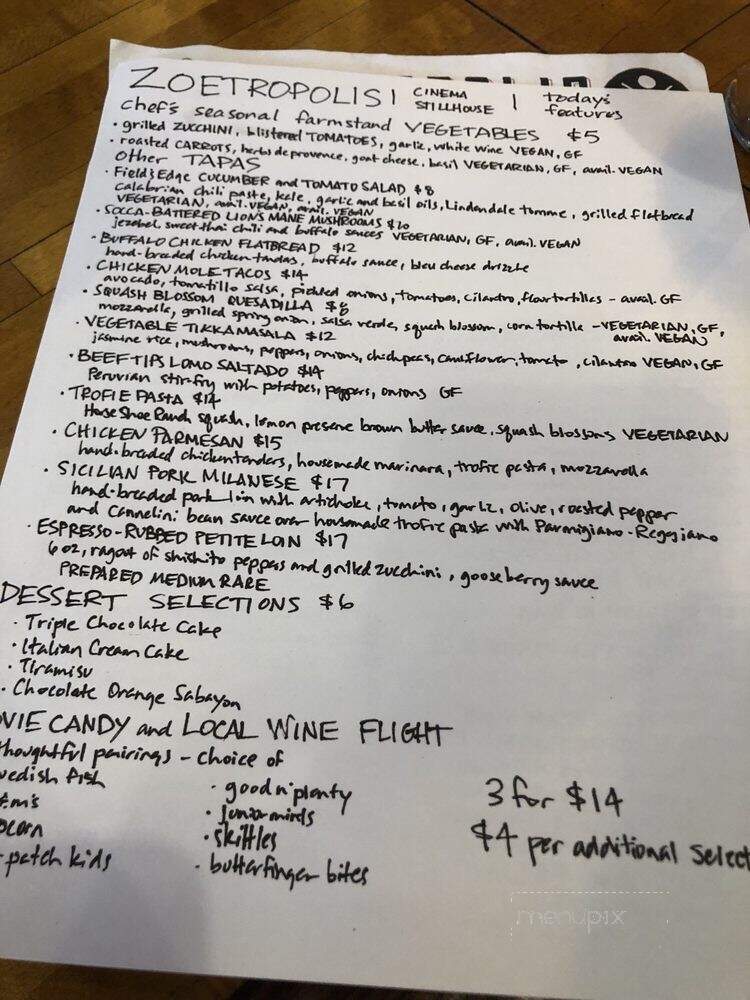 ZOETROPOLIS | CINEMA STILLHOUSE | today's features
chef's seasonal farmstand VEGETABLES $5
· grilled ZUCCHINI, blistered TOMATOES, garlic, white wine VEGAN, GF
· roasted CARROTS, herbs de provence, goat cheese, basil VEGETARIAN, GF, avail. VEGAN
other TAPAS
· Field's Edge CUCUMBER and TOMATO SALAD $8
Calabrian chili paste, kale, garlic and basil oils, Lindendale tomme, grilled flatbread
VEGETARIAN, avail. VEGAN, avail. VEGAN
· SOCCA-BATTERED LION'S MANE MUSHROOMS $10
jezebel, sweet thai chili and buffalo sauces VEGETARIAN, GF, avail. VEGAN
· BUFFALO CHICKEN FLATBREAD $12
hand-breaded chicken tenders, buffalo sauce, bleu cheese drizzle
· CHICKEN MOLE TACOS $14
avocado, tomatillo salsa, pickled onions, tomatoes, cilantro, flour tortillas - avail. GF
· SQUASH BLOSSOM QUESADILLA $8
mozzarella, grilled spring onion, salsa verde, squash blossom, corn tortilla - VEGETARIAN, GF,
avail. VEGAN
· VEGETABLE TIKKA MASALA $12
jasmine rice, mushrooms, peppers, onions, chickpeas, cauliflower, tomato, cilantro VEGAN, GF
· BEEF TIPS LOMO SALTADO $14
Peruvian stir-fry with potatoes, peppers, onions GF
· TROFIE PASTA $14
Horse Shoe Ranch squash, lemon preserve brown butter sauce, squash blossoms VEGETARIAN
· CHICKEN PARMESAN $15
hand-breaded chicken tenders, housemade marinara, trofie pasta, mozzarella
· SICILIAN PORK MILANESE $17
hand-breaded pork loin with artichoke, tomato, garlic, olive, roasted pepper
and cannelini bean sauce over housmade trofie pasta with Parmigiano-Reggiano
· ESPRESSO-RUBBED PETITE LOIN $17
6 oz, ragout of shishito peppers and grilled zucchini, gooseberry sauce
PREPARED MEDIUM RARE
DESSERT SELECTIONS $6
· Triple Chocolate Cake
· Italian Cream Cake
· Tiramisu
· Chocolate Orange Sabayon
VIE CANDY and LOCAL WINE FLIGHT
thoughtful pairings - choice of
wedish fish
m's
corn
patch kids
· good n' plenty
· junior mints
· skittles
· butterfinger bites
3 for $14
$4 per additional select
menupix